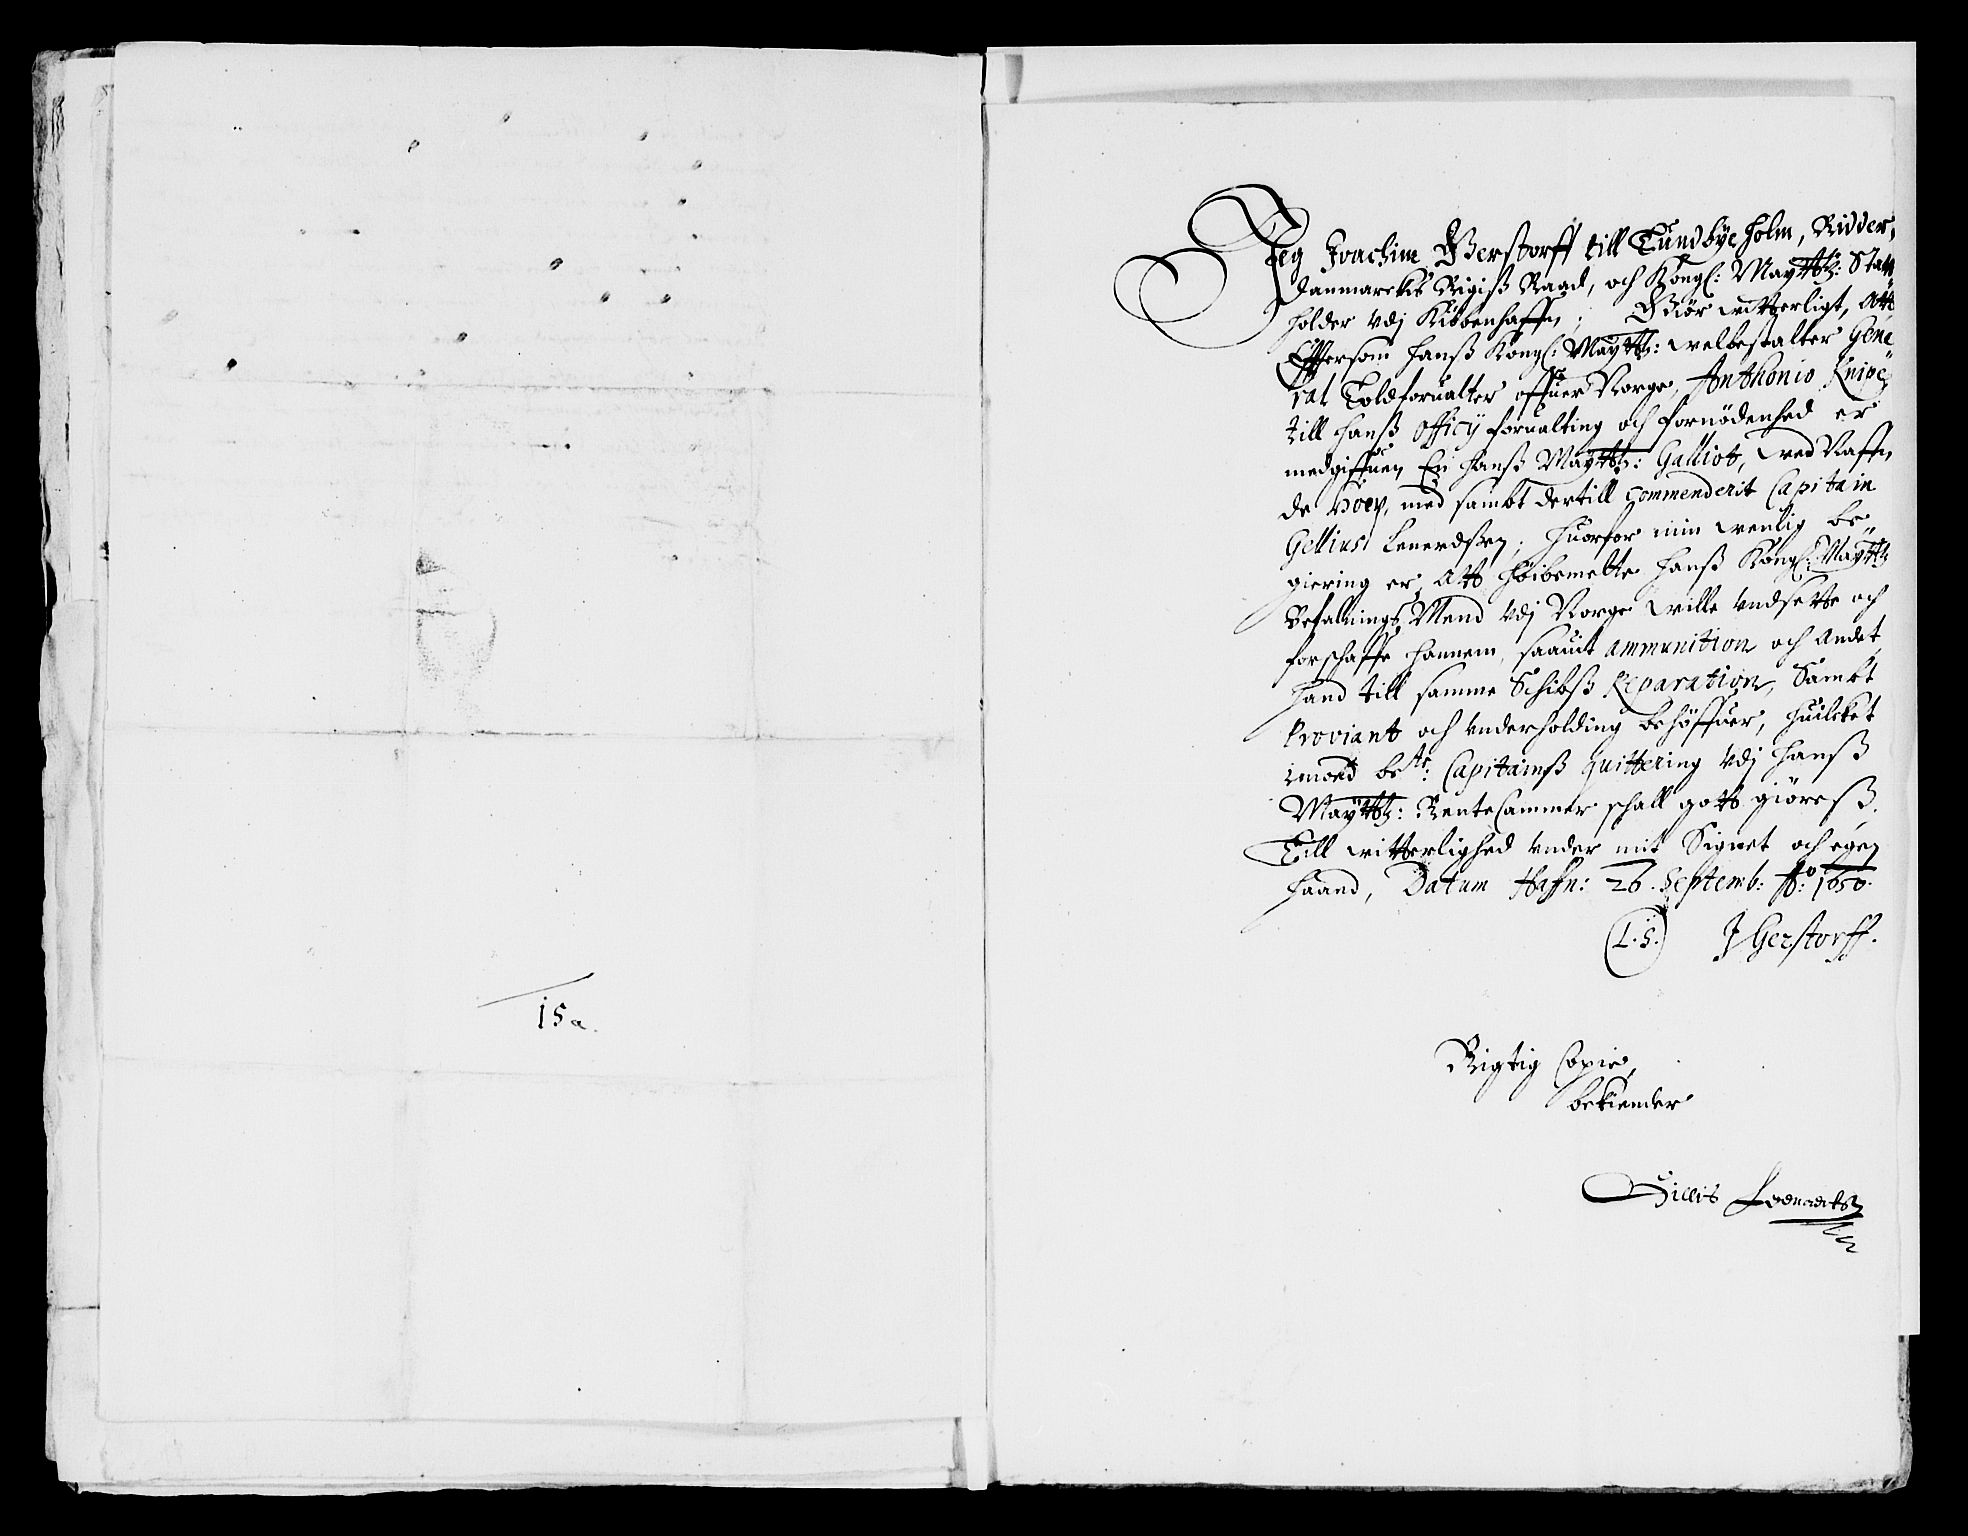 15a.
Jeg Joachim Gerstorff till Tundbÿeholm, Ridder,
Danmarckis Rigiß Raad, och Kongl: Maÿttz: Statt
holder vdj Kiöbenhaffn; Giör witterligt, Att
Effersom hanß Kongl: Maÿttz: welbestalter Gene
ral Toldforualter offuer Norge, Anthonio Knipe,
till hanß officÿ forualting och fornödenhed er
medgiffuen En hanß Maÿttz: Galliot, ved Naffn
de Hoep, med sambt dertill commenderit Capitain
Gellius Lenerdßen; huorfor min venlig be-
giering er, Att höibemelte hanß Kongl: Maÿttz
Befalnings Mend vdj Norge wille vndsette och
forschaffe hannem, saauit ammunition och Andet
hand till samme Schibß Reparation, Sambt
Proviant och vnderholding behöffuer, huilcket
imod bete: Capitainß quittering vdj hanß
Maÿttz: RenteCammer schall gott giöreß.
Till witterlighed vnder mit Signet och egen
haand, Datum Haffn: 26. Septemb: Ao: 1650.
(L.S.) J Gerstorff.
Rigtig Copie,
bekiender
Gillis Leenaerts